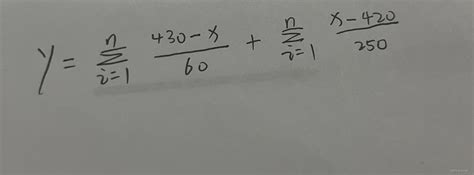 Y = \sum_{i=1}^{n} \frac{430-x}{60} + \sum_{i=1}^{n} \frac{x-420}{250}